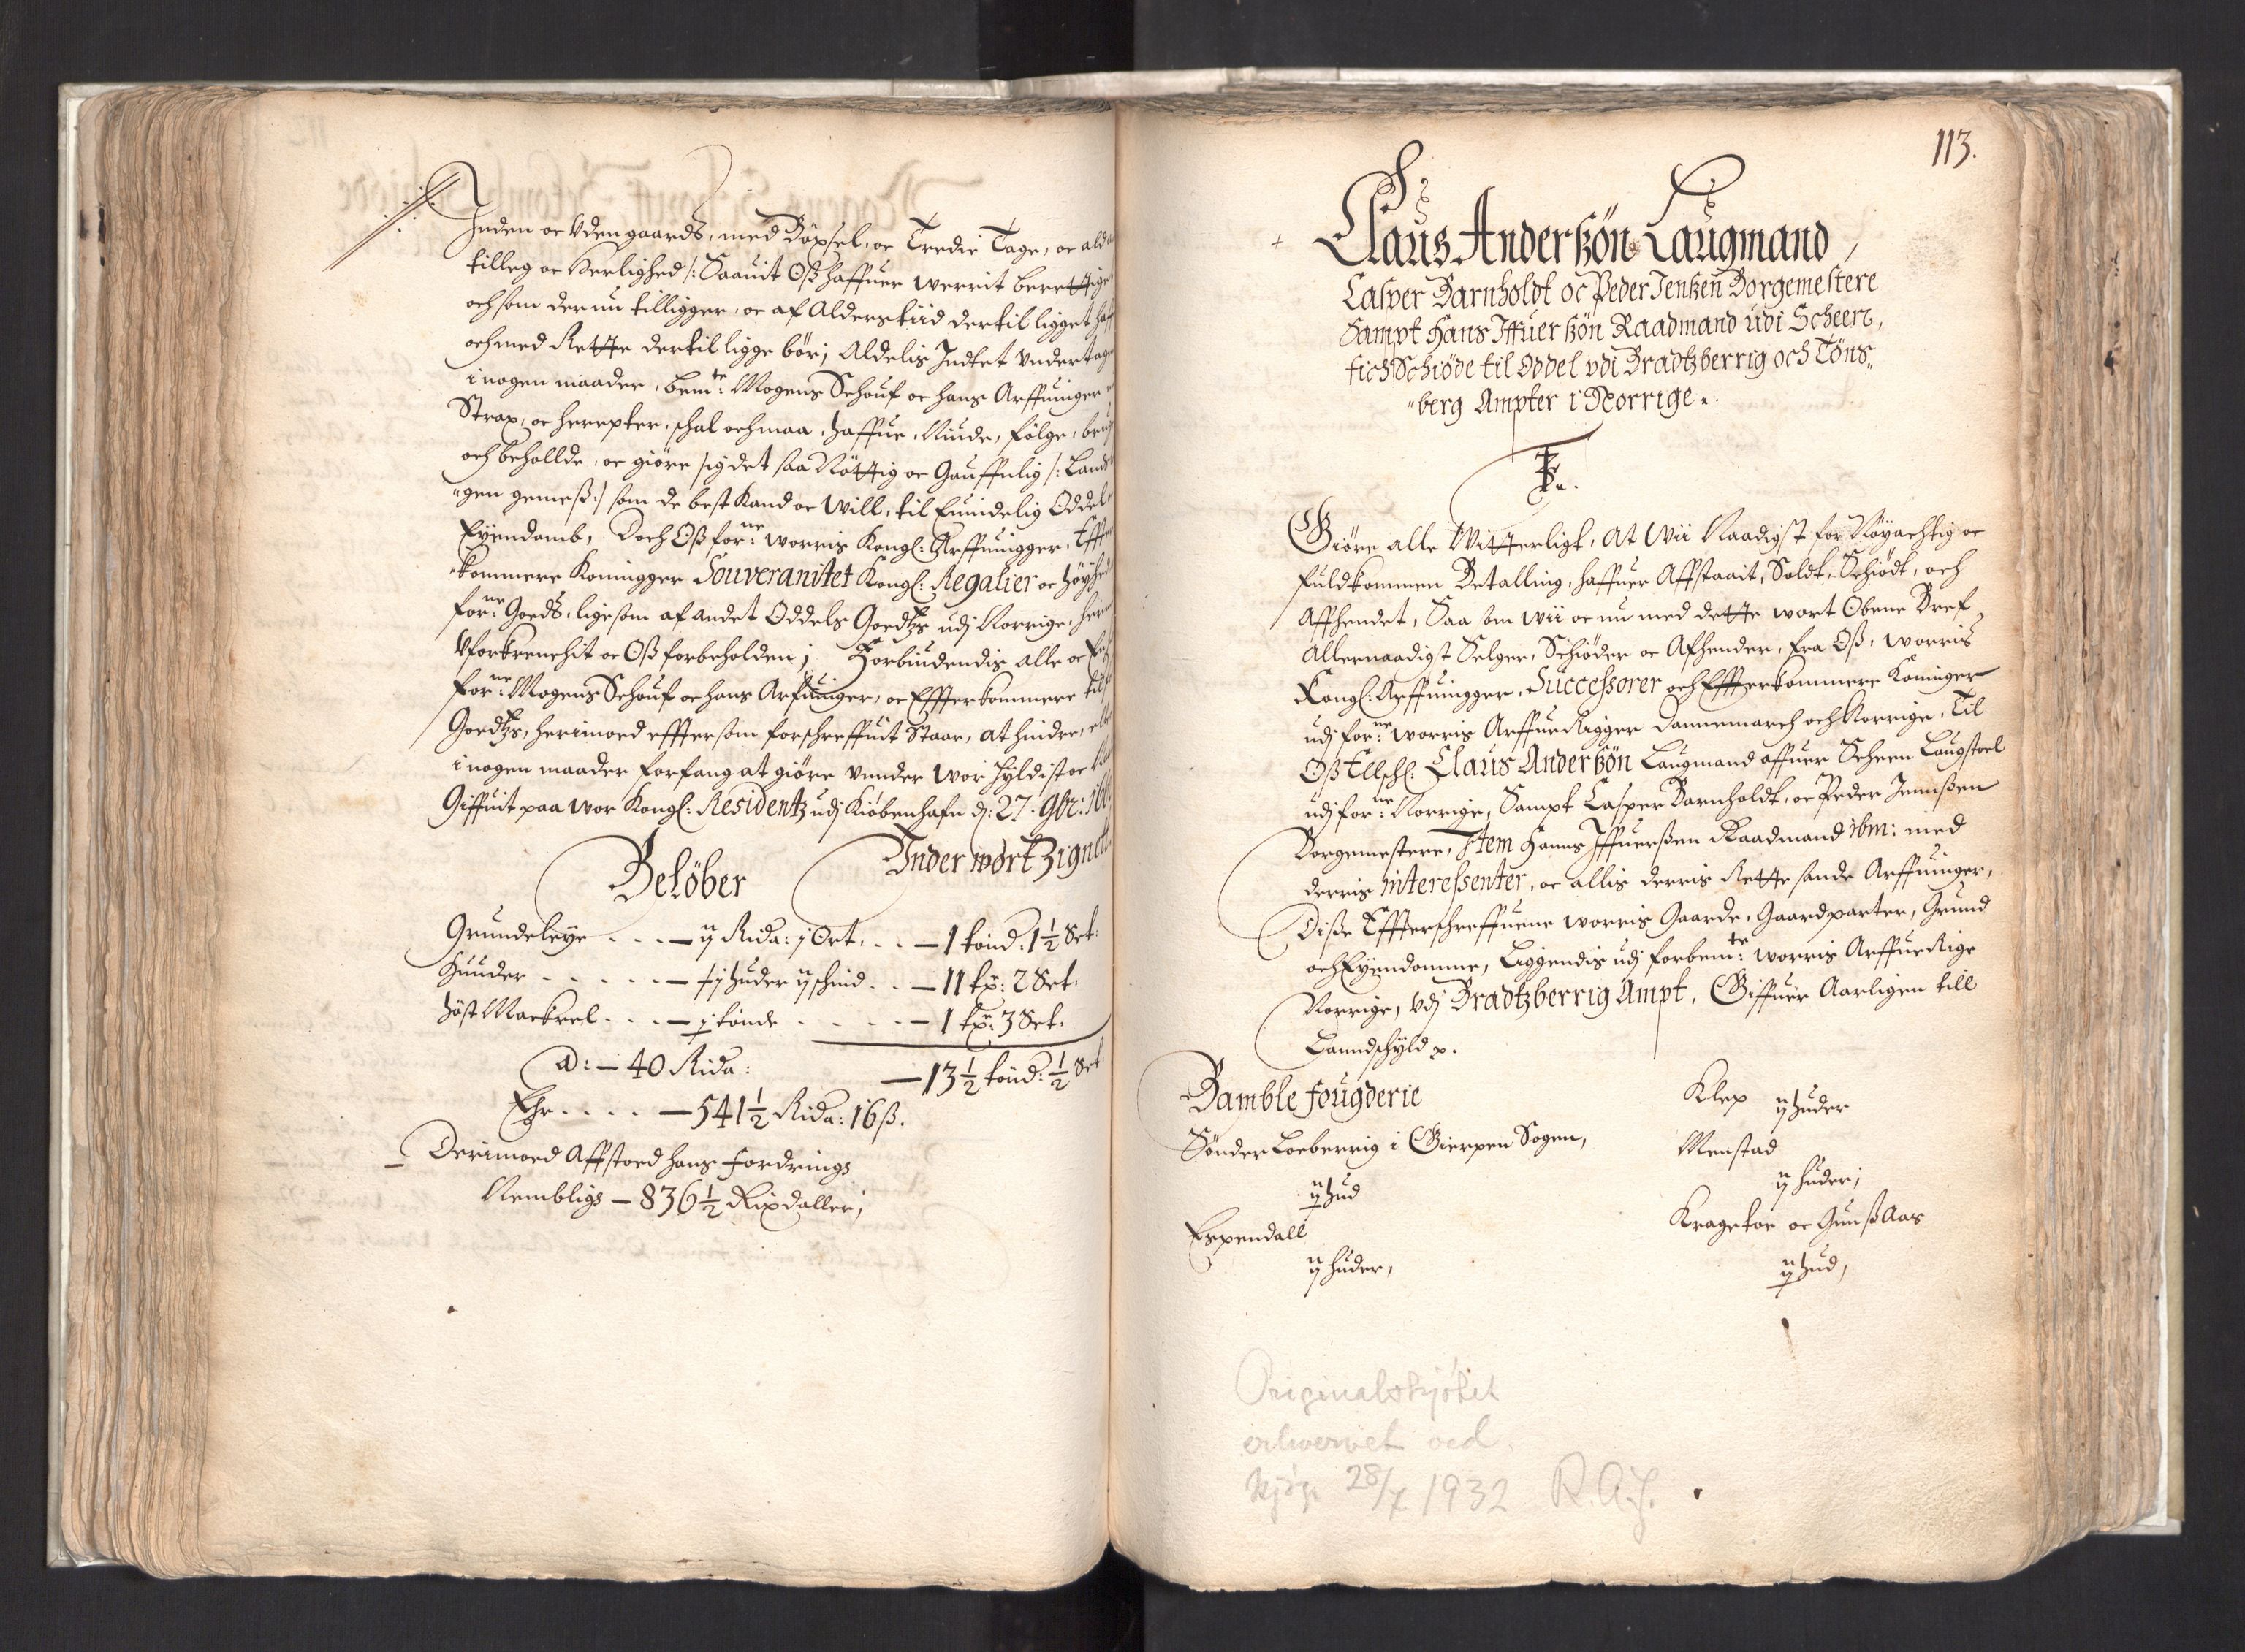 Inden oc Vdengaards, med Böxsel, oc Tredie Tage, oc ald
tilleg oc Herlighed /: Saauit Oß haffuer werrit berettiget
och som der nu tilligger, oc af Alderstiid dertil ligget haff
och med Rette dertil ligge bör; Aldelis Indtet Vndertagen
i nogen maader, bemte: Mogens Schouf oc hans Arffuinger
Strax, oc herepter, schal och maa, haffue, Niude, følge, bruge
och beholde, oc giöre sig det saa Nöttig oc Gauffnlig /: Landz
"gen gemeß :/ som de best Kand oc Will, til Euindelig Oddel
Eyendomb, Doch Oß forne: worris Kongl: Arffuingger, Effter
kommere Koningger Souveranitet Kongl: Regalier oc höyhed
forne: Goeds, ligesom af andet Oddels Goedtzs udj Norrige, heri
Vforkrenchit oc Oß forbeholden; Forbiudendis alle oc
forne: Mogens Schouf oc hans Arfuinger, oc Effterkommere
Goedtzs, herimoed effter som forschreffuit Staar, at hindre,
i nogen maader forfang at giöre vnder Wor hyldist oc
Giffuit paa Wor Kongl: Residentz udj Kiöbenhafn d: 27. 9br:
Under wort Zignett
Belöber
Grundeleye . . . — ij Rida: j Ort. . . — 1 tönd: 1½ Set:
Huuder . . . . . — huder ij schind . . — 11 tr: 2 Set.
höst Mackrel . . . — j tönde . . . . . — 1 tr: 3 Set.
a: — 40 Rida: — 13½ tönd: ½ Set
Ehr . . . . — 541½ Rida: 16 ß.
Derimoed Affstoed hans fordrings
Nembligs — 836½ Rixdaller;
113.
Claus Anderßön Laugmand,
Casper Barnholdt oc Peder Jenßen Borgemestere
Sampt Hans Iffuerßön Raadmand udi Scheen,
fich Schiöde til Oddel vdi Bradtzberrig och Töns"
"berg Ampter i Norrige.
Giöre alle Witterligt, At Wii Naadigst for Nöyachtig oc
fuldkommen Betalling, haffuer Affstaait, Soldt, Schiödt, och
Affhendet, Saa som wii oc nu med dette wort Obene Bref,
Allernaadigst Selger, Schiöder oc Afhender, fra Oß, worris
Kongl: Arffuingger, Successorer och Effterkommere Koninger
udj forne: worris Arffue Rigger Dannemarch och Norrige, Til
Oß Ellschl: Claus Anderßön Laugmand offuer Scheen Laugstoel
udj forne: Norrige, Sampt Casper Barnholdt, oc Peder Jennßen
Borgemestere, Item Hanns Iffuerßen Raadmand ibm: med
derris Interessenter, oc allis derris Rette sande Arffuinger,
Diße Effterschreffuene worris Gaarde, Gaardparter, Grund
och Eyendomme, Liggendis udj forbemte: worris Arffue Rige
Norrige, Vdj Bradtzberrig Ampt, Giffuer Aarligen till
Lanndschyld
Bamble fougderie
Sönder Loeberrig i Gierpen Sogen,
ij hud
Espendall
ij huder,
Klep ij huder
Menstad
ij huder;
Kragetoe oc GunßAas
ij hud,
Originalskjötet
erhvervet ved
kjöp 28/X 1932 R.A.J.